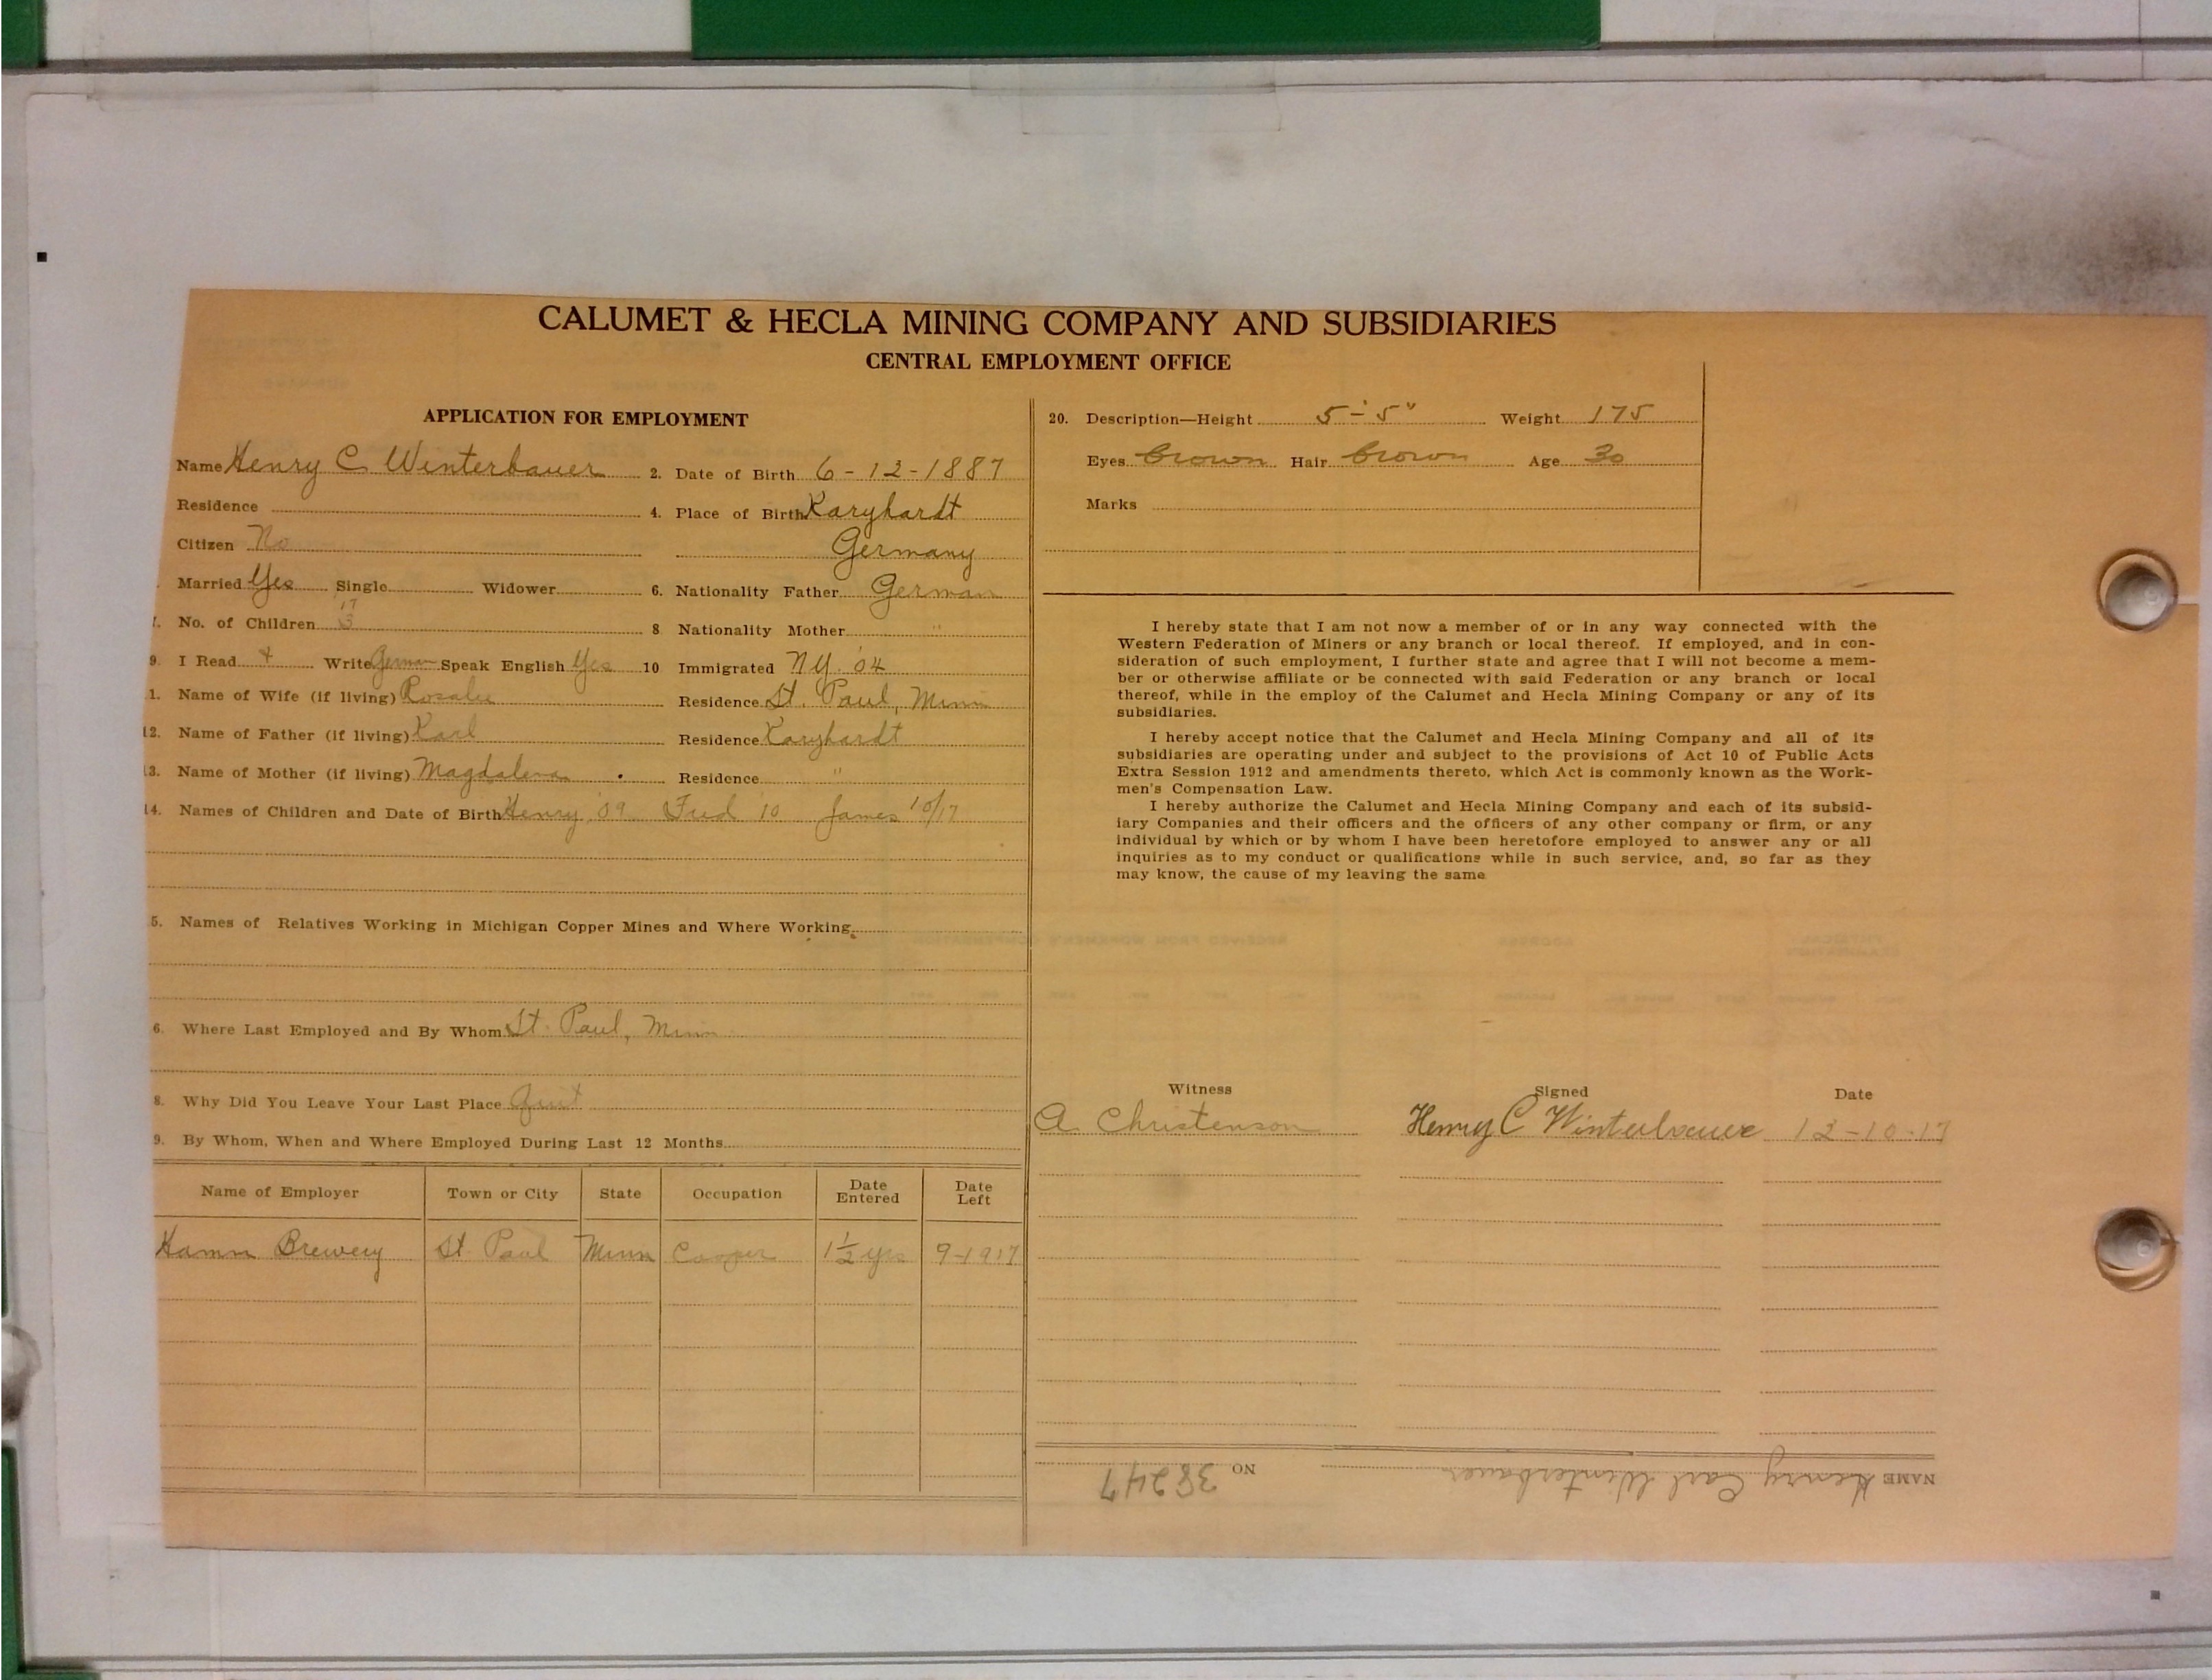 CALUMET & HECLA MINING COMPANY AND SUBSIDIARIES
CENTRAL EMPLOYMENT OFFICE
APPLICATION FOR EMPLOYMENT
Name Henry C Winterbauer 2. Date of Birth 6-12-1887
Residence 4. Place of Birth Karyhardt
Citizen No Germany
Married Yes Single Widower 6. Nationality Father German
7. No. of Children 3 8 Nationality Mother "
9. I Read + Write German Speak English Yes 10 Immigrated N.Y. '04
1. Name of Wife (if living) Rosalie Residence St. Paul, Minn
12. Name of Father (if living) Karl Residence Karyhardt
13. Name of Mother (if living) Magdalena Residence "
14. Names of Children and Date of Birth Henry '09 Fred '10 James 10/17
5. Names of Relatives Working in Michigan Copper Mines and Where Working
6. Where Last Employed and By Whom St. Paul, Minn
8. Why Did You Leave Your Last Place Quit
9. By Whom, When and Where Employed During Last 12 Months
Name of Employer Town or City State Occupation Date Entered Date Left
Hamm Brewery St. Paul Minn Cooper 1½ yrs 9-1917
20. Description—Height 5'-5" Weight 175
Eyes brown Hair brown Age 30
Marks
I hereby state that I am not now a member of or in any way connected with the
Western Federation of Miners or any branch or local thereof. If employed, and in con-
sideration of such employment, I further state and agree that I will not become a mem-
ber or otherwise affiliate or be connected with said Federation or any branch or local
thereof, while in the employ of the Calumet and Hecla Mining Company or any of its
subsidiaries.
I hereby accept notice that the Calumet and Hecla Mining Company and all of its
subsidiaries are operating under and subject to the provisions of Act 10 of Public Acts
Extra Session 1912 and amendments thereto, which Act is commonly known as the Work-
men's Compensation Law.
I hereby authorize the Calumet and Hecla Mining Company and each of its subsid-
iary Companies and their officers and the officers of any other company or firm, or any
individual by which or by whom I have been heretofore employed to answer any or all
inquiries as to my conduct or qualifications while in such service, and, so far as they
may know, the cause of my leaving the same
Witness Signed Date
A. Christenson Henry C Winterbauer 12-10-17
NAME Henry Carl Winterbauer NO 38247